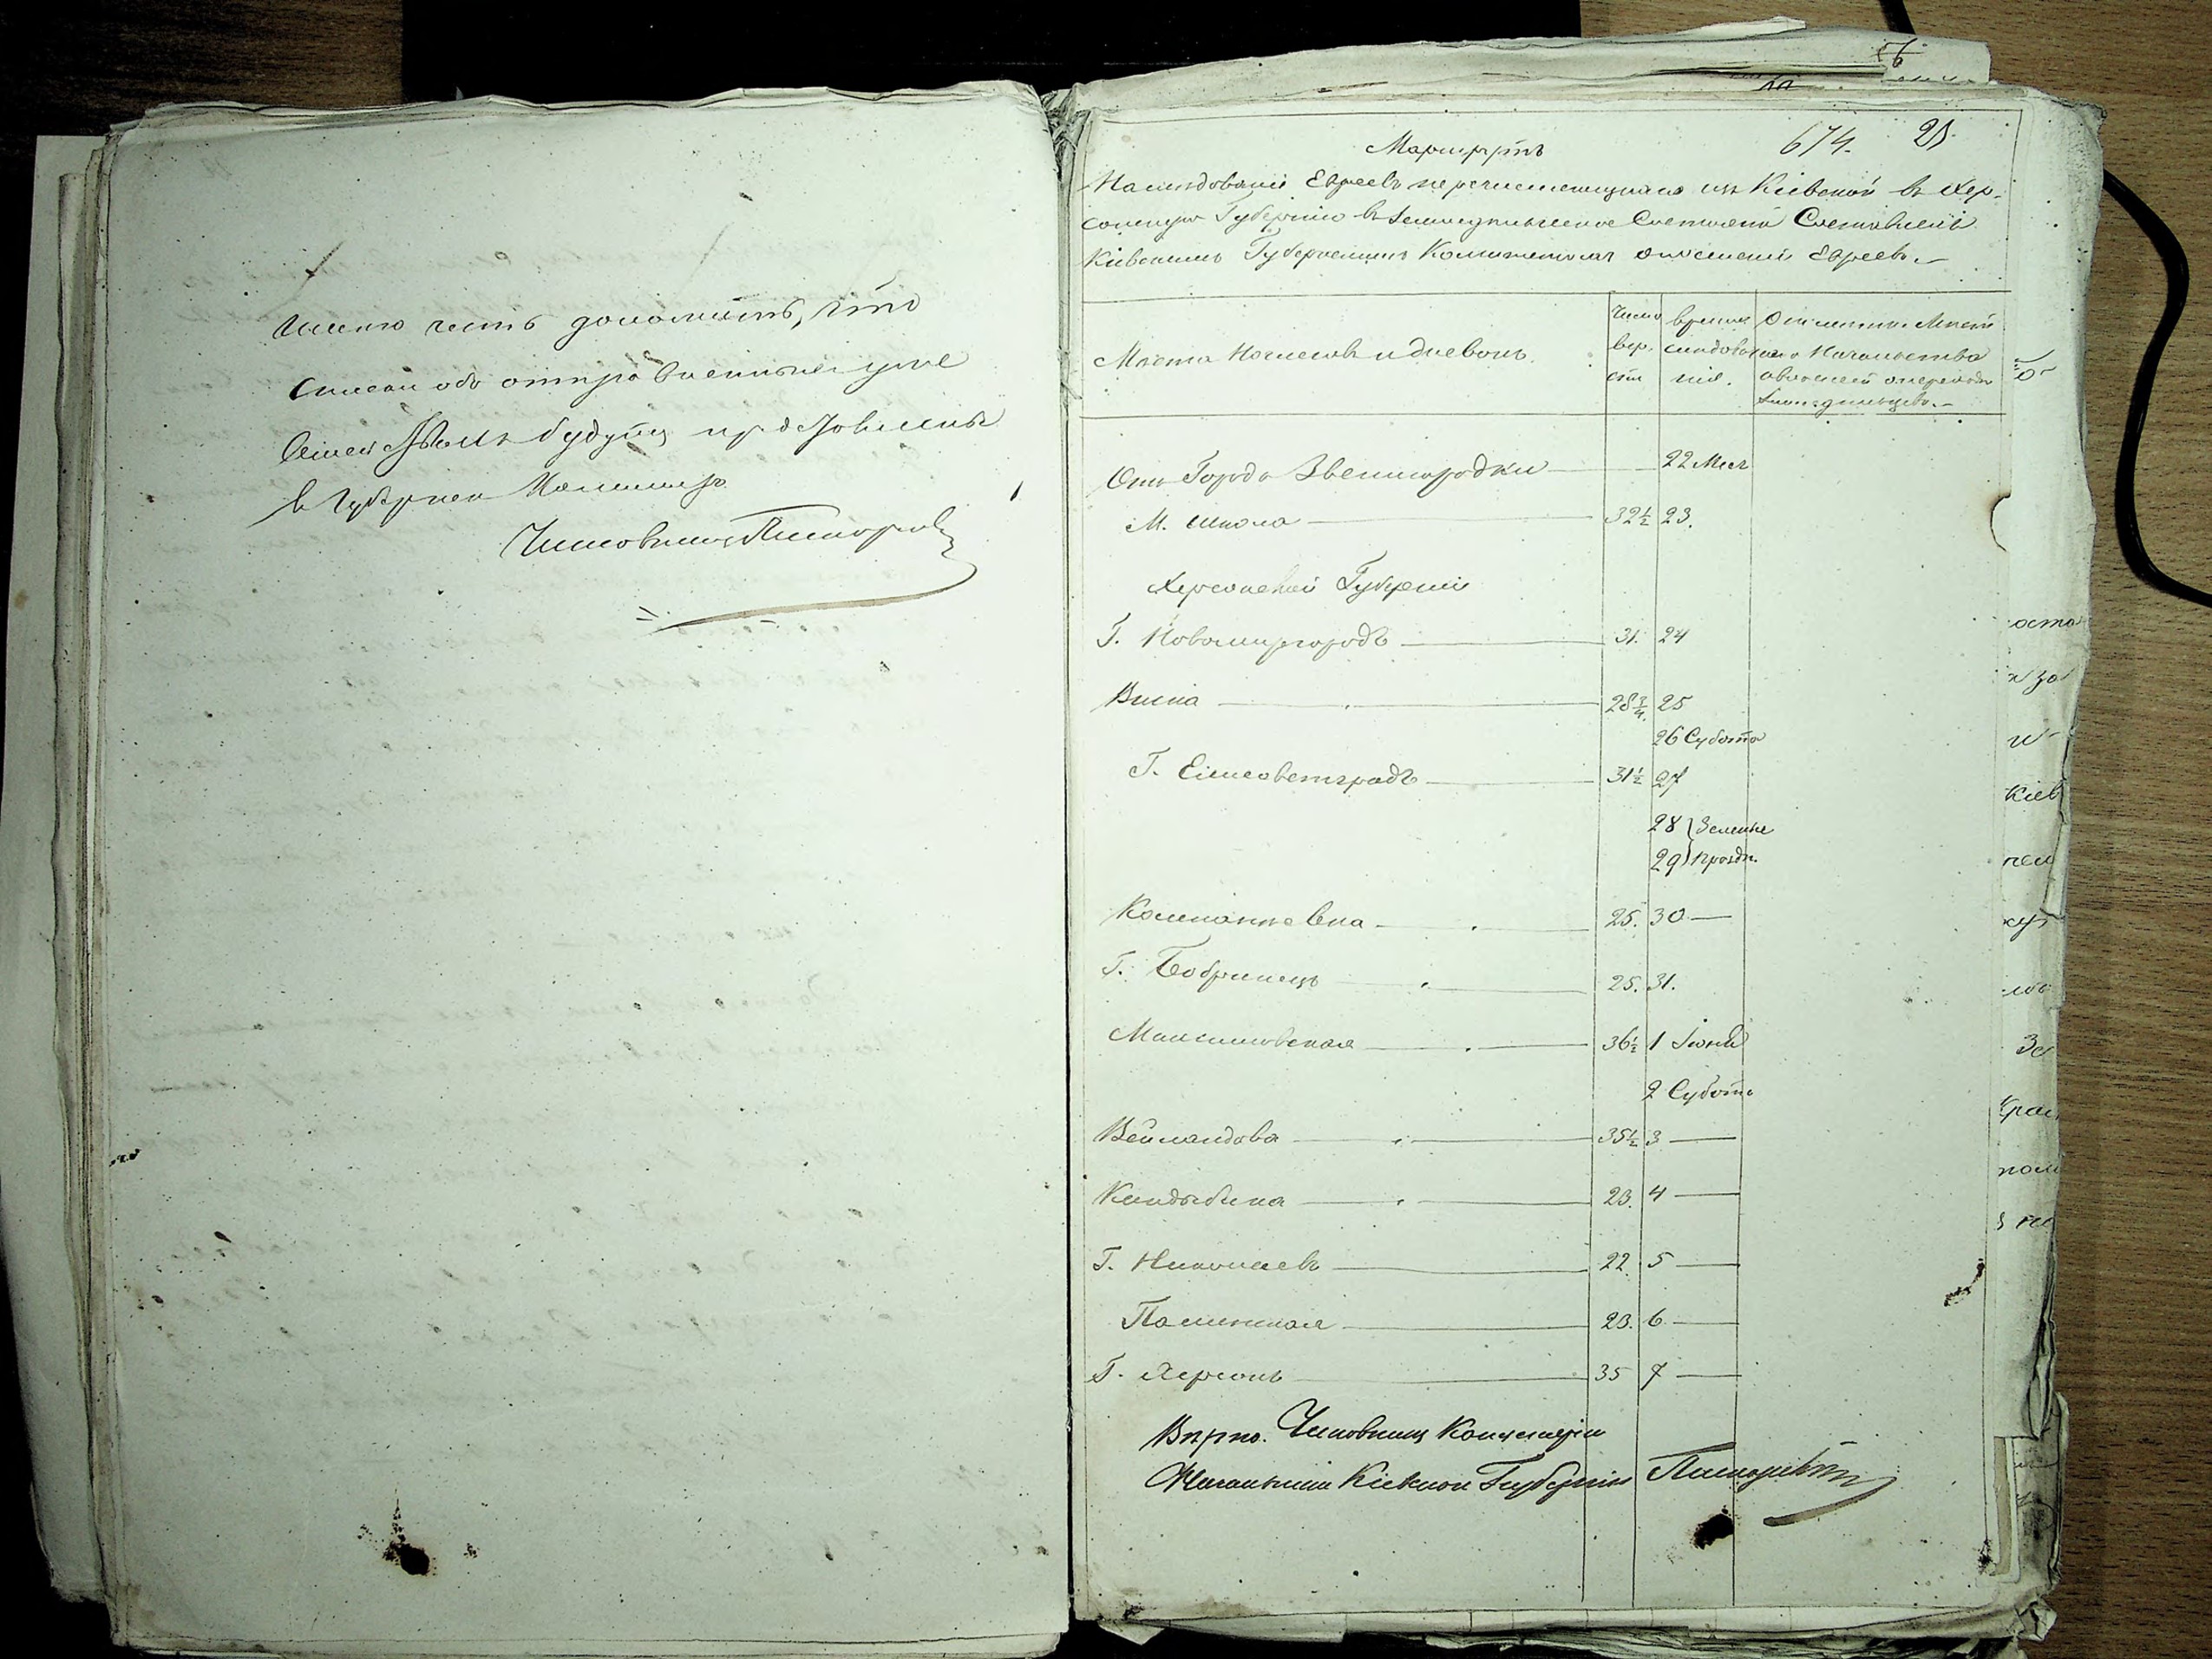 Имею честь дополнить, что
списки объ отправленныхъ уже
семействахъ будутъ представлены
в Губернск
Чиновникъ
674. 21
Маршрутъ
На слѣдованіе Евреевъ перечисляющихся изъ Кіевской въ Хер-
сонскую Губернію въ Земледѣльческое Состояніе Составленъ
Кіевскимъ Губернскимъ Комитетомъ Евреевъ.
Мѣста Ночлеговъ и дневокъ.
Число верстъ
время слѣдованія.
Отмѣтка Мѣстнаго Начальства о переходѣ земледѣльцевъ.
Отъ Города Звенигородки 22 Мая
М. Шпола 32½ 23.
Херсонской Губерніи
Г. Новомиргородъ 31. 24
Виска 28¾ 25
26 Субота
Г. Елисоветградъ 31½ 27
28 } Зеленые
29 } праздн.
Компанѣевка 25. 30
Г. Бобринецъ 25. 31.
Максимовская 36½ 1 Іюня
2 Субота
Вейландова 35½ 3
Кандыбина 23. 4
Г. Николаевъ 22. 5
23. 6
Г. Херсонъ 35 7
Вѣрно. Чиновникъ Канцеляріи
Начальника Кіевской Губерніи